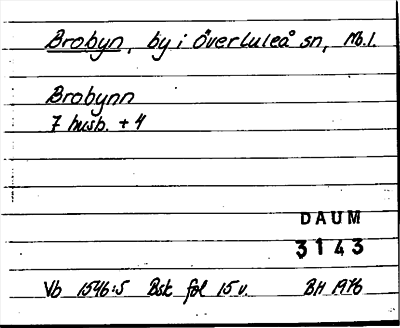 Brobyn, by i Överluleå sn, Nb.l.
Brobynn
7 husb. + 4
DAUM
3143
Vb 1546:5 Bsk fol 15 v. BH 1976